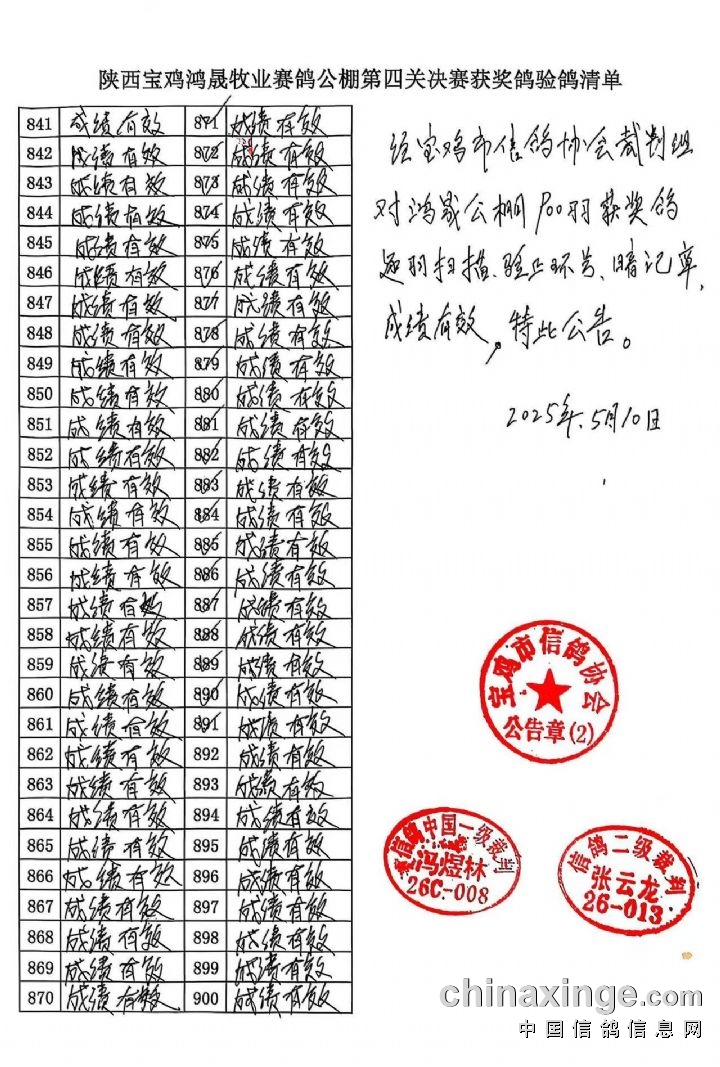 陕西宝鸡鸿晟牧业赛鸽公棚第四关决赛获奖鸽验鸽清单
841 成绩有效 871 成绩有效
842 成绩有效 872 成绩有效
843 成绩有效 873 成绩有效
844 成绩有效 874 成绩有效
845 成绩有效 875 成绩有效
846 成绩有效 876 成绩有效
847 成绩有效 877 成绩有效
848 成绩有效 878 成绩有效
849 成绩有效 879 成绩有效
850 成绩有效 880 成绩有效
851 成绩有效 881 成绩有效
852 成绩有效 882 成绩有效
853 成绩有效 883 成绩有效
854 成绩有效 884 成绩有效
855 成绩有效 885 成绩有效
856 成绩有效 886 成绩有效
857 成绩有效 887 成绩有效
858 成绩有效 888 成绩有效
859 成绩有效 889 成绩有效
860 成绩有效 890 成绩有效
861 成绩有效 891 成绩有效
862 成绩有效 892 成绩有效
863 成绩有效 893 成绩有效
864 成绩有效 894 成绩有效
865 成绩有效 895 成绩有效
866 成绩有效 896 成绩有效
867 成绩有效 897 成绩有效
868 成绩有效 898 成绩有效
869 成绩有效 899 成绩有效
870 成绩有效 900 成绩有效
经宝鸡市信鸽协会裁判组
对鸿晟公棚900羽获奖鸽
逐羽扫描、验正环号、暗记章,
成绩有效,特此公告。
2025年.5月10日
宝鸡市信鸽协会
公告章(2)
信鸽中国一级裁判
冯煜林
26C-008
信鸽二级裁判
张云龙
26-013
chinaxinge.com
中国信鸽信息网